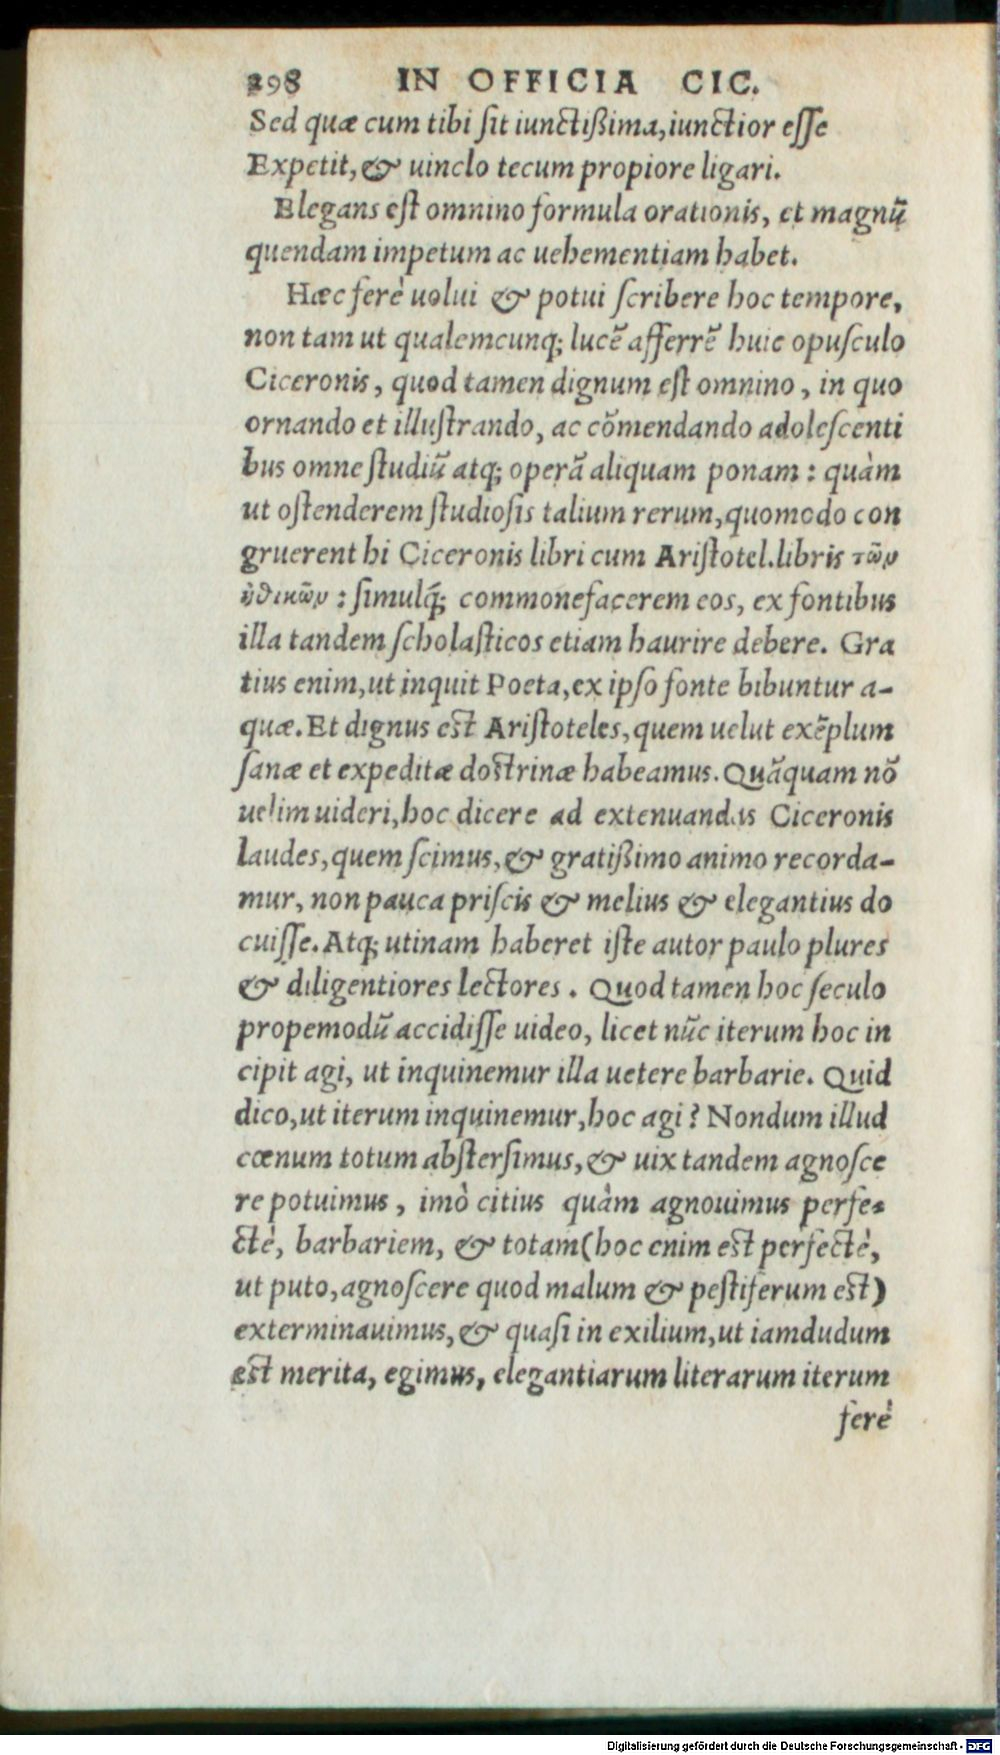 298 IN OFFICIA CIC.
Sed quæ cum tibi ſit iunctißima, iunctior eſſe
Expetit, & uinclo tecum propiore ligari.
Elegans eſt omnino formula orationis, et magnũ
quendam impetum ac uehementiam habet.
Hæc ferè uolui & potui ſcribere hoc tempore,
non tam ut qualemcunq; lucẽ afferrẽ huic opuſculo
Ciceronis, quod tamen dignum eſt omnino, in quo
ornando et illuſtrando, ac cõmendando adoleſcenti
bus omne ſtudiũ atq; operã aliquam ponam: quàm
ut oſtenderem ſtudioſis talium rerum, quomodo con
gruerent hi Ciceronis libri cum Ariſtotel. libris τῶν
ἠθικῶν: ſimulq́; commonefacerem eos, ex fontibus
illa tandem ſcholaſticos etiam haurire debere. Gra
tius enim, ut inquit Poeta, ex ipſo fonte bibuntur a-
quæ. Et dignus eſt Ariſtoteles, quem uelut exẽplum
ſanæ et expeditæ doctrinæ habeamus. Quãquam nõ
uelim uideri, hoc dicere ad extenuandas Ciceronis
laudes, quem ſcimus, & gratißimo animo recorda-
mur, non pauca priſcis & melius & elegantius do
cuiſſe. Atq; utinam haberet iſte autor paulo plures
& diligentiores lectores. Quod tamen hoc ſeculo
propemodũ accidiſſe uideo, licet nũc iterum hoc in
cipit agi, ut inquinemur illa uetere barbarie. Quid
dico, ut iterum inquinemur, hoc agi? Nondum illud
cœnum totum abſterſimus, & uix tandem agnoſce
re potuimus, imò citius quàm agnouimus perfe-
ctè, barbariem, & totam (hoc enim eſt perfectè,
ut puto, agnoſcere quod malum & peſtiferum eſt)
exterminauimus, & quaſi in exilium, ut iamdudum
eſt merita, egimus, elegantiarum literarum iterum
ferè
Digitalisierung gefördert durch die Deutsche Forschungsgemeinschaft - DFG